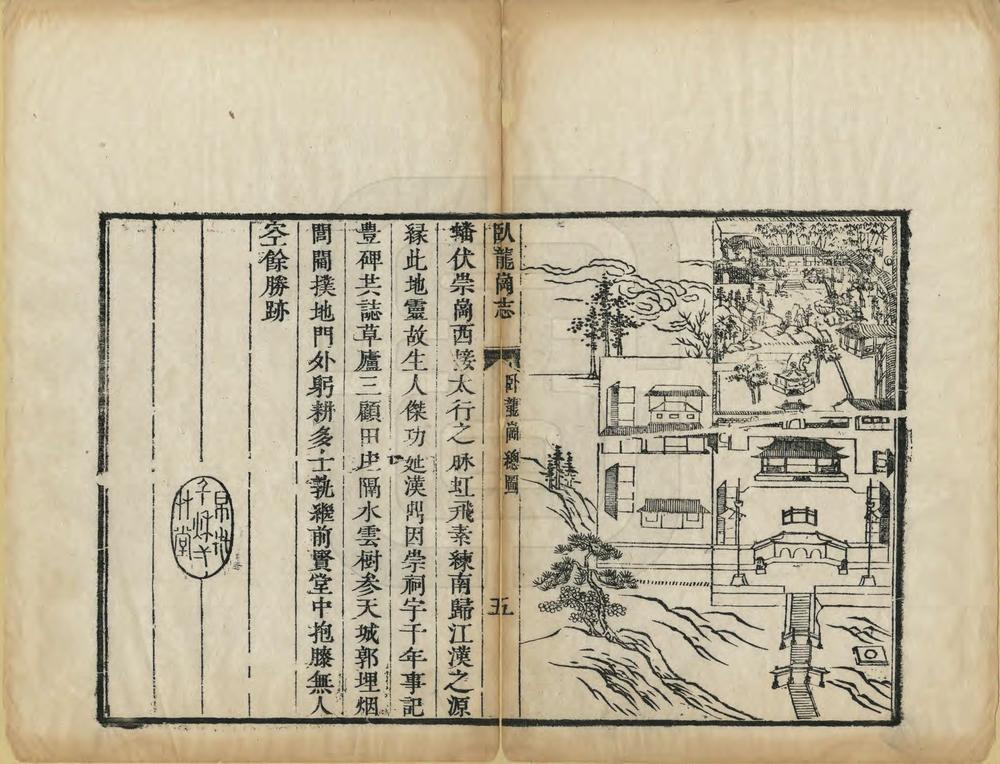 臥龍崗志
卧龍崗總圖
五
蟠伏崇崗西接太行之脉虹飛素練南歸江漢之源
緑此地靈故生人傑功 漢 因崇祠宇千年事記
豊碑共誌草廬三顧田 隔水雲樹参天城郭埋烟
閭閻撲地門外躬耕多士孰繼前賢堂中抱膝無人
空餘勝跡